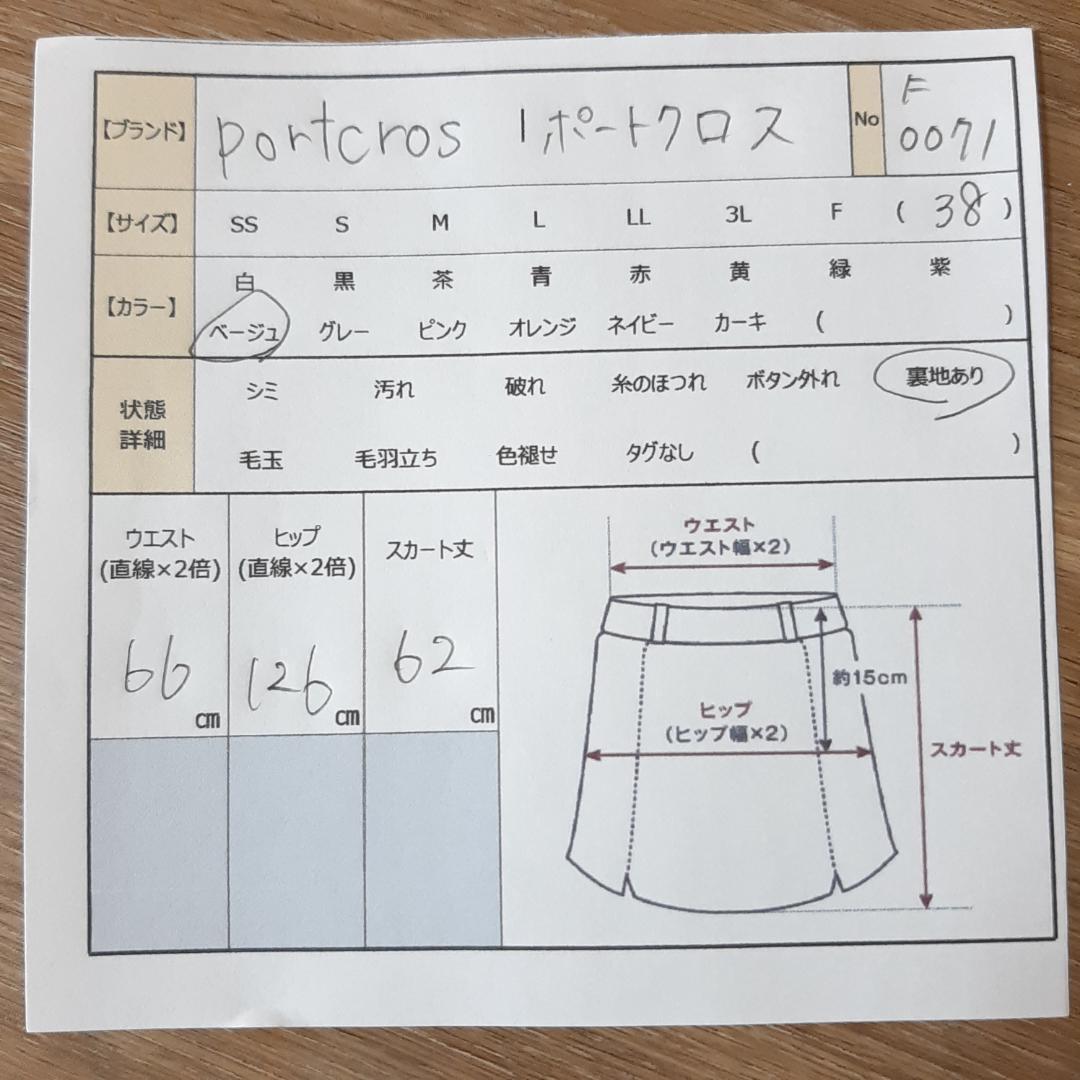 【ブランド】 portcros | ポートクロス No F
0071
【サイズ】 SS S M L LL 3L F ( 38 )
【カラー】 白 黒 茶 青 赤 黄 緑 紫
ベージュ グレー ピンク オレンジ ネイビー カーキ ( )
状態
詳細
シミ 汚れ 破れ 糸のほつれ ボタン外れ 裏地あり
毛玉 毛羽立ち 色褪せ タグなし ( )
ウエスト
(直線×2倍)
66 cm
ヒップ
(直線×2倍)
126 cm
スカート丈
62 cm
ウエスト
(ウエスト幅×2)
約15cm
ヒップ
(ヒップ幅×2)
スカート丈